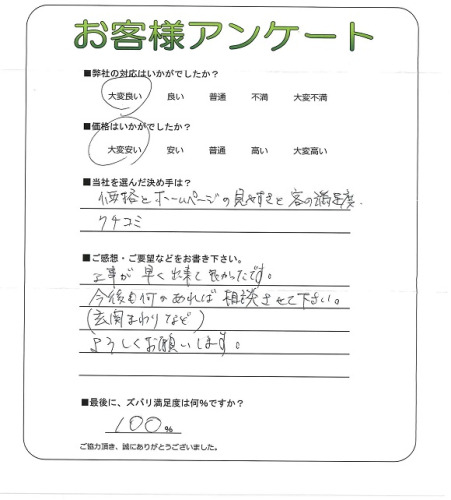 お客様アンケート
■弊社の対応はいかがでしたか？
大変良い 良い 普通 不満 大変不満
■価格はいかがでしたか？
大変安い 安い 普通 高い 大変高い
■当社を選んだ決め手は？
価格とホームページの見やすさと客の満足度.
クチコミ
■ご感想・ご要望などをお書き下さい。
工事が早く出来て良かったです。
今後も何かあれば相談させて下さい。
(玄関まわりなど)
よろしくお願いします。
■最後に、ズバリ満足度は何%ですか？
100%
ご協力頂き、誠にありがとうございました。